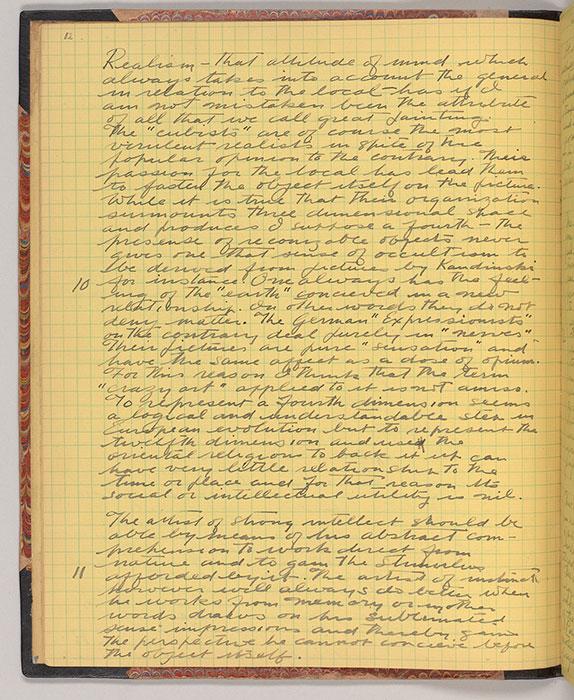 12
Realism – that attitude of mind which
always takes into account the general
in relation to the local – has if I
am not mistaken been the attribute
of all that we call great painting.
The "cubists" are of course the most
virulent realists in spite of the
popular opinion to the contrary. Their
passion for the local has lead them
to fasten the object itself on the picture.
While it is true that their organization
surmounts three dimensional space
and produces I suppose a fourth – the
presense of reconizable objects never
gives one that sense of occultism to
be derived from pictures by Kandinski
10 for instance. One always has the feel-
ing of the "earth" concieved in a new
relationship. In other words they do not
deny matter. The German "Expressionists"
on the contrary deal purely in "nerves".
Their pictures are pure "sensation" and
have the same affect as a dose of opium.
For this reason I think that the term
"crazy art" applied to it is not amiss.
To represent a fourth dimension seems
a logical and understandable step in
European evolution but to represent the
twelfth dimension and use the
oriental religions to back it up can
have very little relationship to the
time or place and for that reason its
social or intellectual utility is nil.
The artist of strong intellect should be
able by means of his abstract com-
prehension to work direct from
nature and to gain the stimulus
11 afforded by it. The artist of instinct
however will always do better when
he works from memory or in other
words draws on his sublimated
sense impressions and thereby gains
the perspective he cannot concieve before
the object itself.